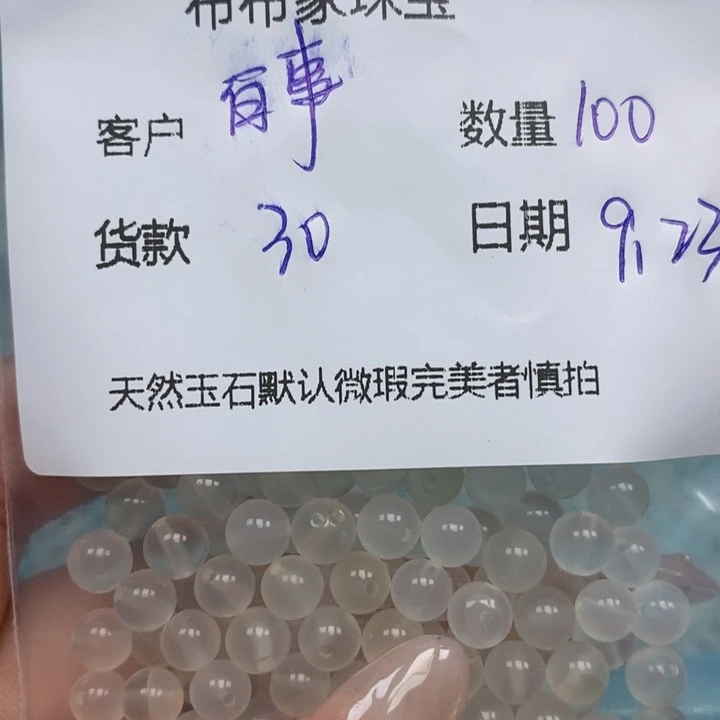 布布家珠宝
客户 有事 数量 100
货款 30 日期 9.23
天然玉石默认微瑕完美者慎拍